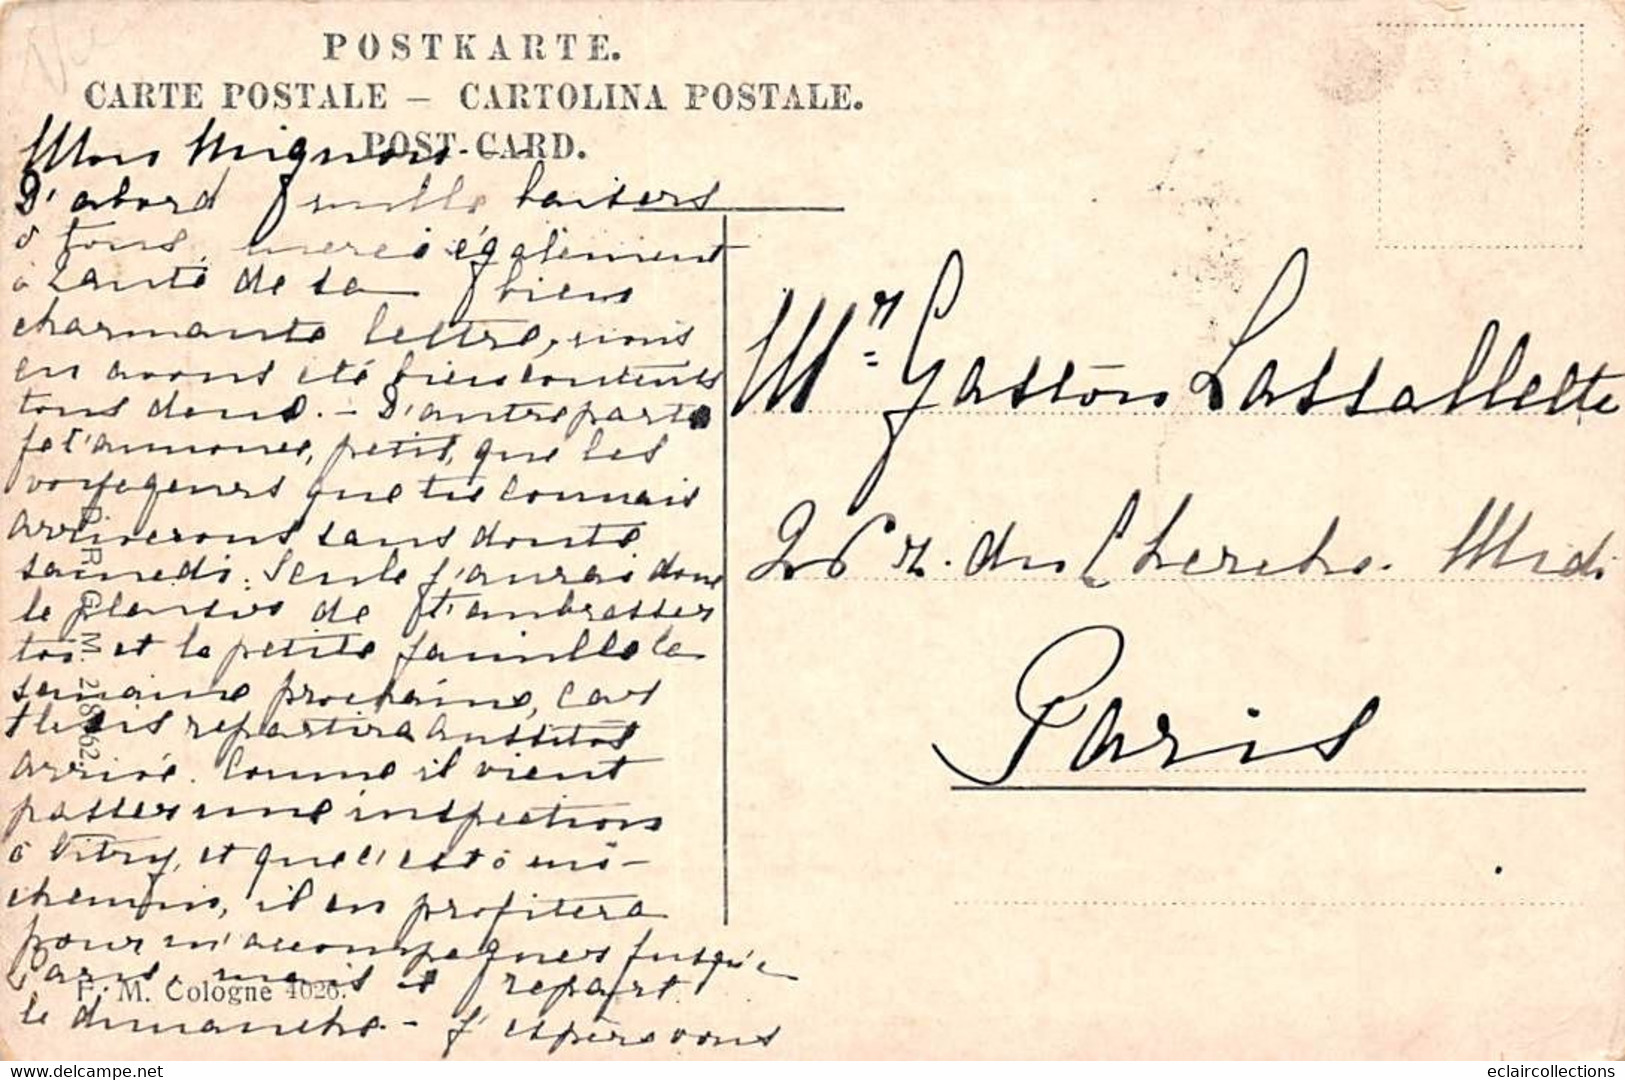 POSTKARTE.
CARTE POSTALE – CARTOLINA POSTALE.
POST-CARD.
Mon Mignon
D'abord mille baisers
à tous, merci également
à tante de sa bien
charmante lettre, nous
en avons été bien contents
tous deux. – D'autre part
je t'annonce, petit, que les
voyageurs que tu connais
arriverons sans doute
samedi. Seule j'aurai donc
le plaisir de t'embrasser
toi et la petite famille la
semaine prochaine, car
repartira aussitôt
arrivé. Comme il vient
passer une inspection
à Vitry, et que c'est à mi-
chemin, il en profitera
pour m'accompagner jusqu'à
Paris, mais il repart
le dimanche. – J'espère vous
D. R. G. M.
F. M. Cologne 4026.
Mr Gaston Lassallette
26 r. du Cherche. Midi
Paris
delcampe.net
eclaircollections